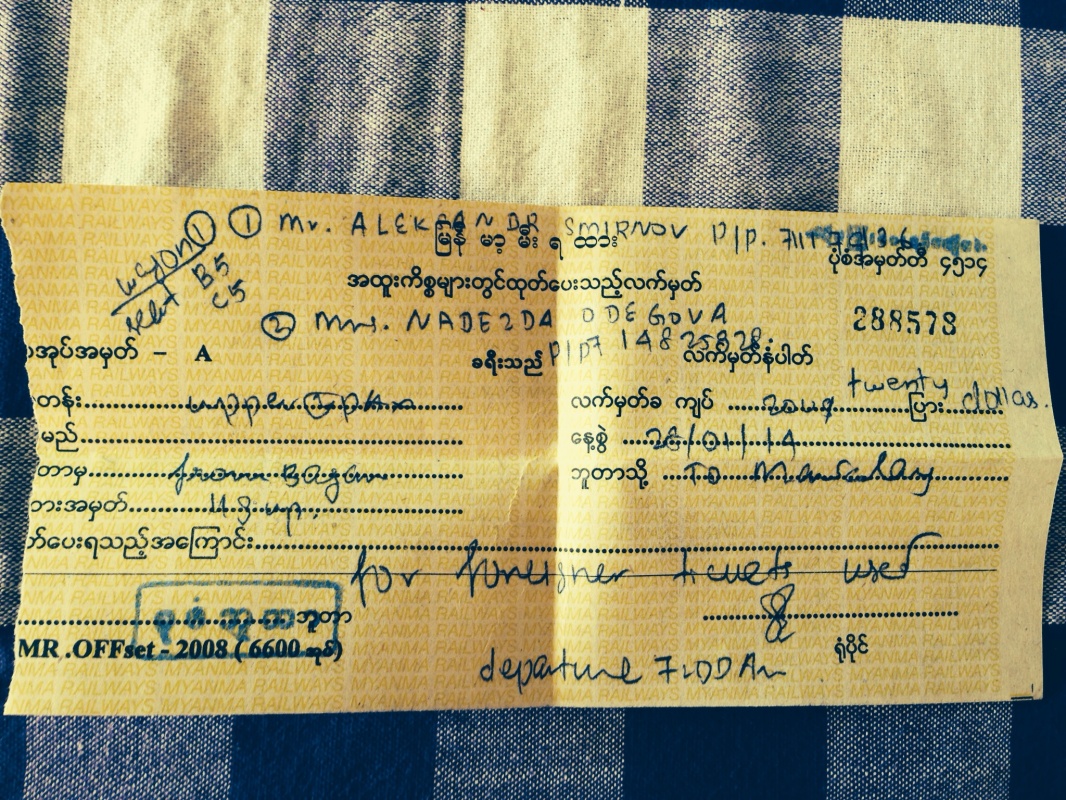 ① Mr. ALEKSANDR SMIRNOV P/P.
မြန်မာ့မီးရထား
ပုံစံအမှတ်တီ ၄၅၁၄
wagon ①
seat B5
C5
အထူးကိစ္စများတွင်ထုတ်ပေးသည့်လက်မှတ်
② Mrs. NADEZDA ODEGOVA
288573
အုပ်အမှတ် – A
ခရီးသည်
လက်မှတ်နံပါတ်
တန်း upper
လက်မှတ်ခ ကျပ် twenty ပြား dollas.
မည်
နေ့စွဲ 26/01/14
တာမှ from Bagan
ဘူတာသို့ To Mandalay
အမှတ် 118 up.
ပေးရသည့်အကြောင်း
for foreigner tickets used
ဘူတာ
MR .OFFset - 2008 ( 6600 အုပ်)
ရုံပိုင်
departure 7:00 Am